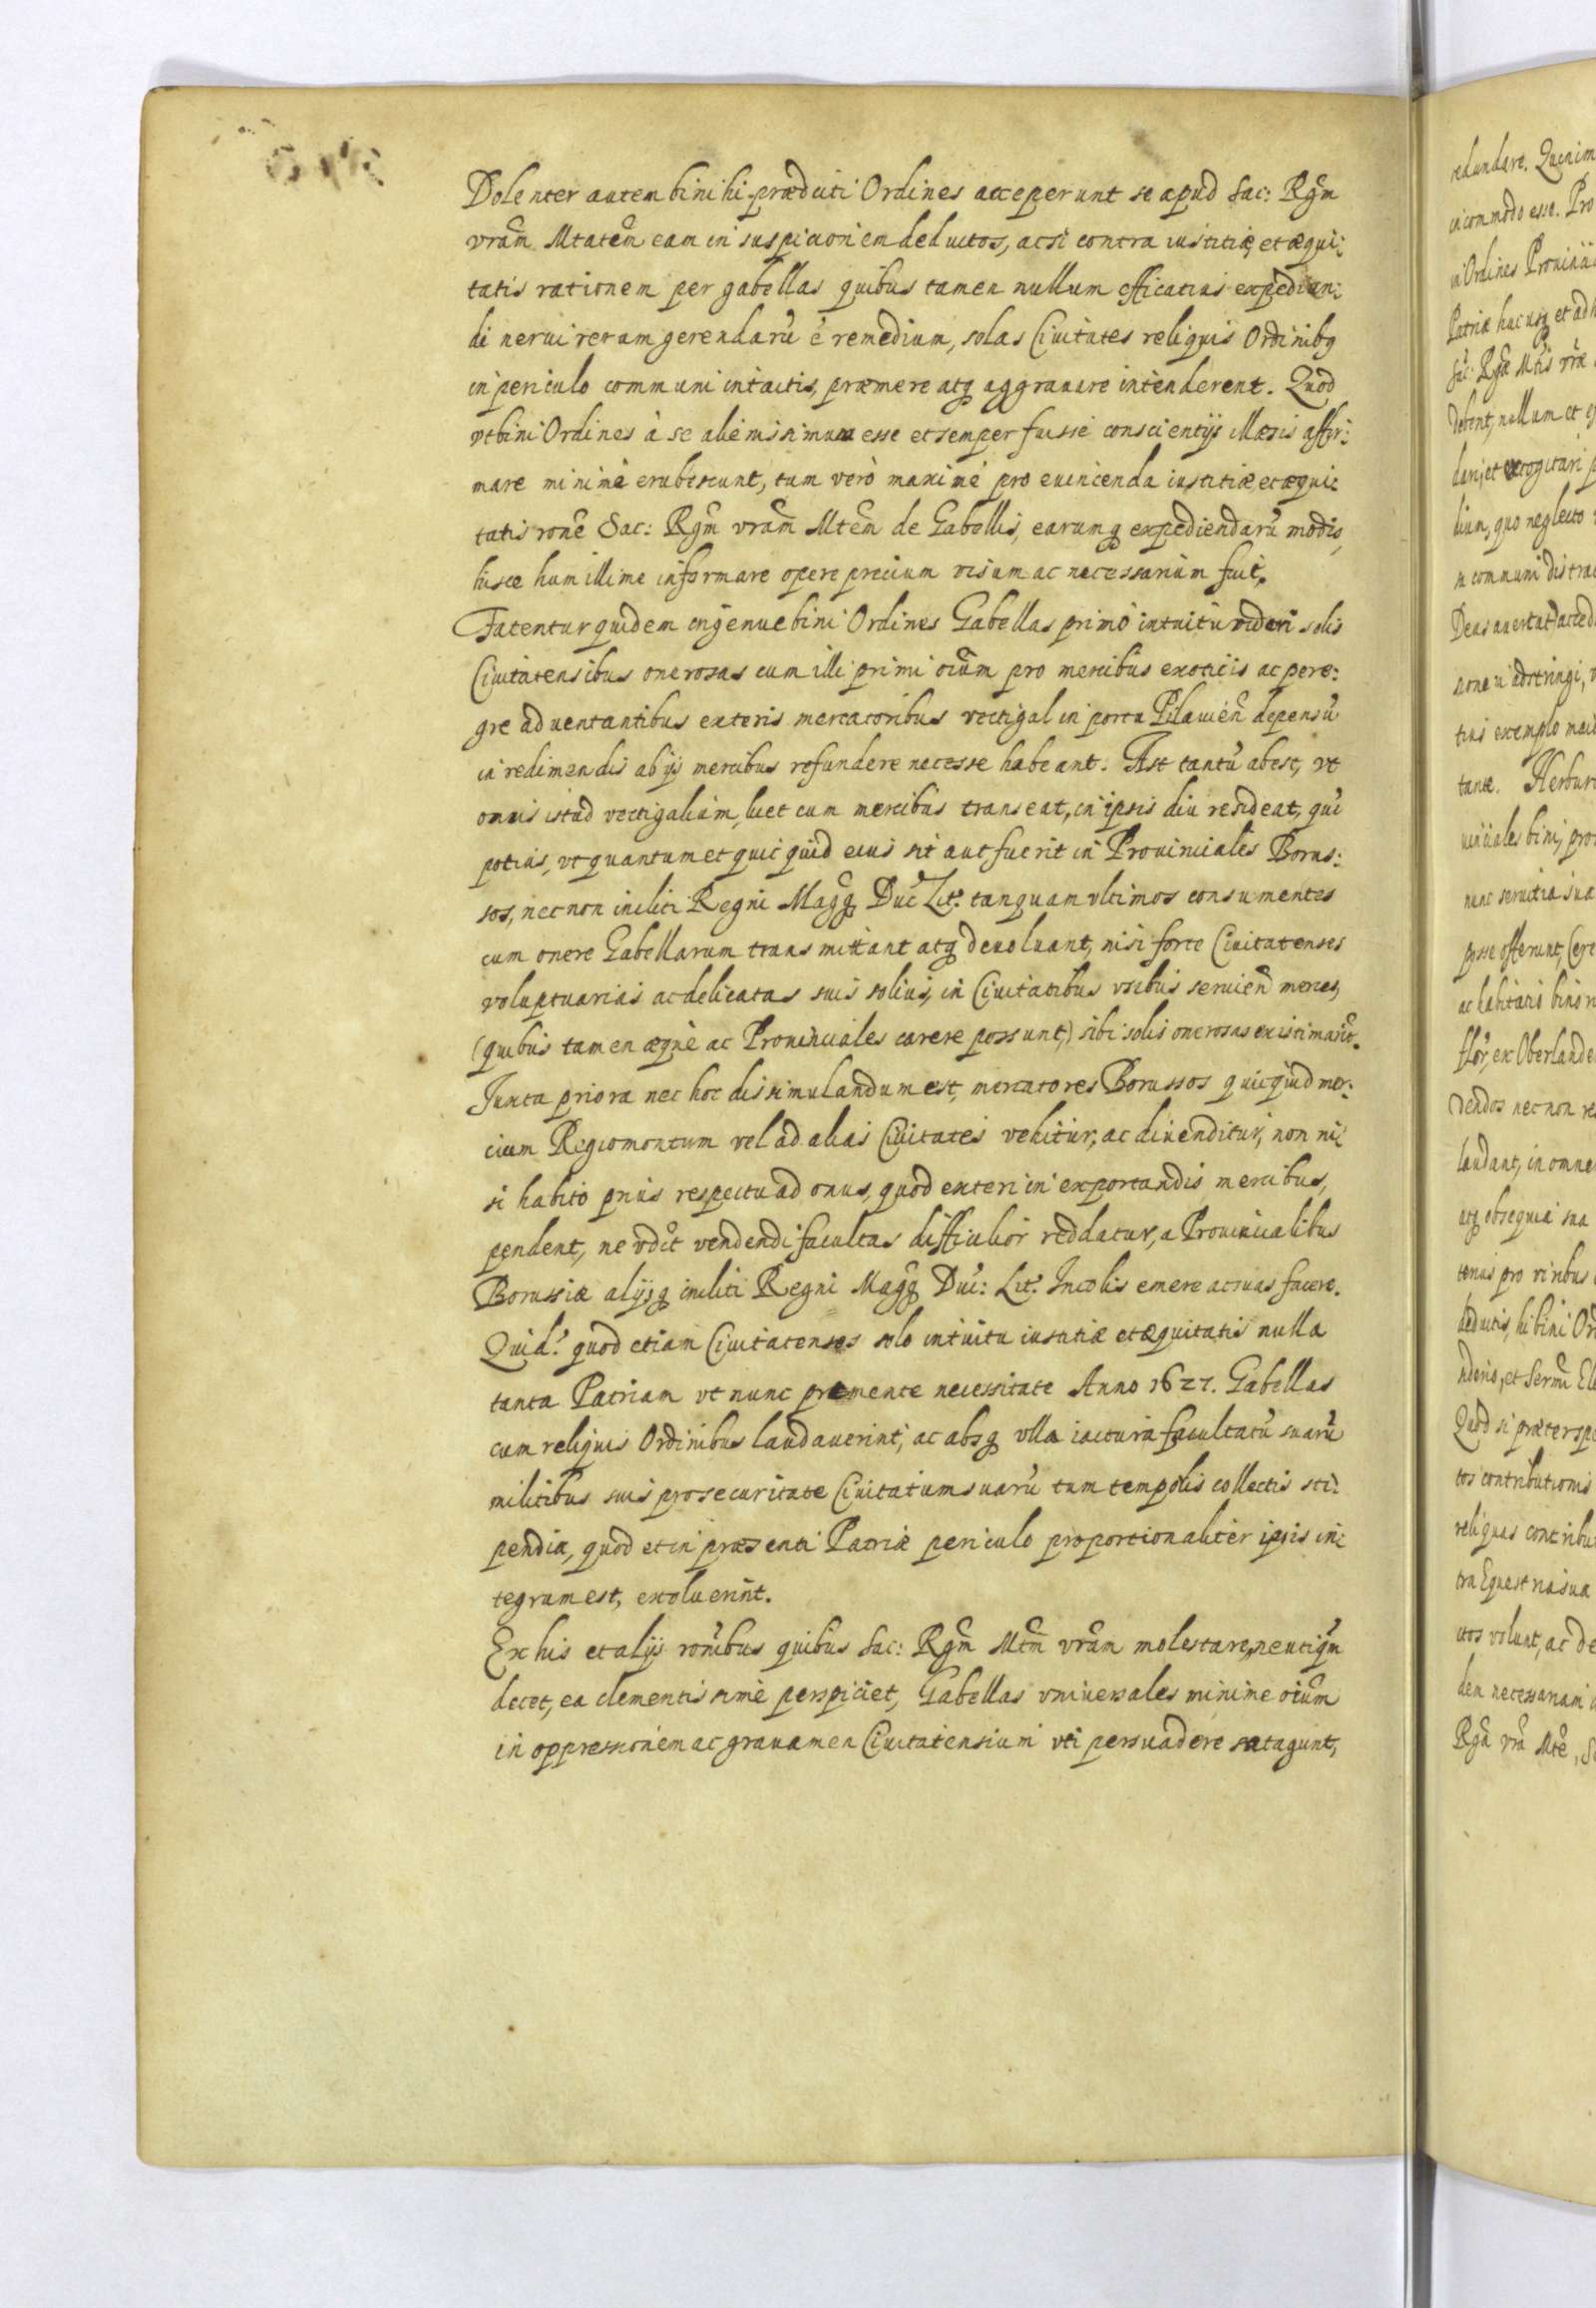 Dolenter autem bini hi prædicti Ordines acceperunt se apud Sac: Rgm̃
vrãm Mtatem̃ eam in suspicionem deductos, acsi contra iustitiæ, et æqui:
tatis rationem per gabellas quibus tamen nullum efficatius expedien:
di nerui rerum gerendarũ ẽ remedium, solas Ciuitates reliquis Ordinibq
in periculo communi intactis, præmere atq aggrauare intenderent. Quod
vt bini Ordines à se alienissimum esse et semper fuisse conscientijs illæsis affir:
mare minimè erubescunt, tum verò maximè pro euincenda iustitiæ et æqui:
tatis ronẽ Sac: Rgm̃ vrãm Mtem̃ de Gabellis, earumq expediendarũ modis,
hisce humillime informare opere precium visum ac necessarium fuit.
Fatentur quidem ingenue bini Ordines Gabellas primo intuitu videri solis
Ciuitatensibus onerosas cum illi primi oium̃ pro mercibus exoticis ac pere:
gre aduentantibus exteris mercatoribus vectigal in portu Pilauieñ depensũ
in redimendis ab ijs mercibus refundere necesse habeant. Ast tantũ abest, vt
onus istud vectigalium, licet cum mercibus transeat, in ipsis diu resideat, qui
potius, vt quantum et quicquid eius sit aut fuerit in Prouinciales Borus:
sos, nec non incliti Regni Magq Duc̃ Lit: tanquam vltimos consumentes
cum onere Gabellarum transmittant atq deuoluant, nisi forte Ciuitatenses
voluptuarias ac delicatas suis solius, in Ciuitatibus vsibus seruieñd merces,
(quibus tamen æquè ac Prouinciales carere possunt,) sibi solis onerosas existimarĩt.
Iuxta priora nec hoc dissimulandum est, mercatores Borussos quicquid mer:
cium Regiomontum vel ad alias Ciuitates vehitur, ac diuenditur, non ni:
si habito prius respectu ad onus, quod exteri in exportandis mercibus,
pendent, ne vdct vendendi facultas difficilior reddatur, a Prouincialibus
Borussiæ alijsq incliti Regni Magq Duc: Lit: Incolis emere ac suas facere.
Quid? quod etiam Ciuitatenses solo intuitu iustitiæ et æquitatis nulla
tanta Patriam vt nunc præmente necessitate Anno 1627. Gabellas
cum reliquis Ordinibus laudauerint, ac absq vlla iactura facultatũ suarũ
militibus suis pro securitate Ciuitatum suarũ tum temporis collectis sti:
pendia, quod et in præsenti Patriæ periculo proportionaliter ipsis in:
tegrum est, exoluerint.
Ex his et alijs ronĩbus quibus Sac: Rgm̃ Mtm̃ vrãm molestare, neutiqm̃
decet, ea clementissimè perspiciet, Gabellas vniuersales minime oium̃
in oppressionem ac grauamen Ciuitatensium vti persuadere satagunt,
redundare. Quinim
incommodo esse. Pro
in Ordines Prouincia
Patriæ hucusq et adh
Sac: Rgæ Mtis vræ
debent, nullum et
dari, et excogitari p
lium, quo neglecto
n communi distrac
Deus auertat acced
tius exemplo mai
tante.
uinciales bini, pro
nunc seruitia sua
posse offerunt,
ac habitatis binis
ex Oberlande
dendos nec non re
laudant, in omne
atq obsequia sua
tenus pro viribus
deductis, hi bini Ord
Quod si præter sp
tos contributionis
reliquas contribu
tra Equestria sua
uos volunt, ac de
den necessariam
Rgæ vræ Mtẽ, S